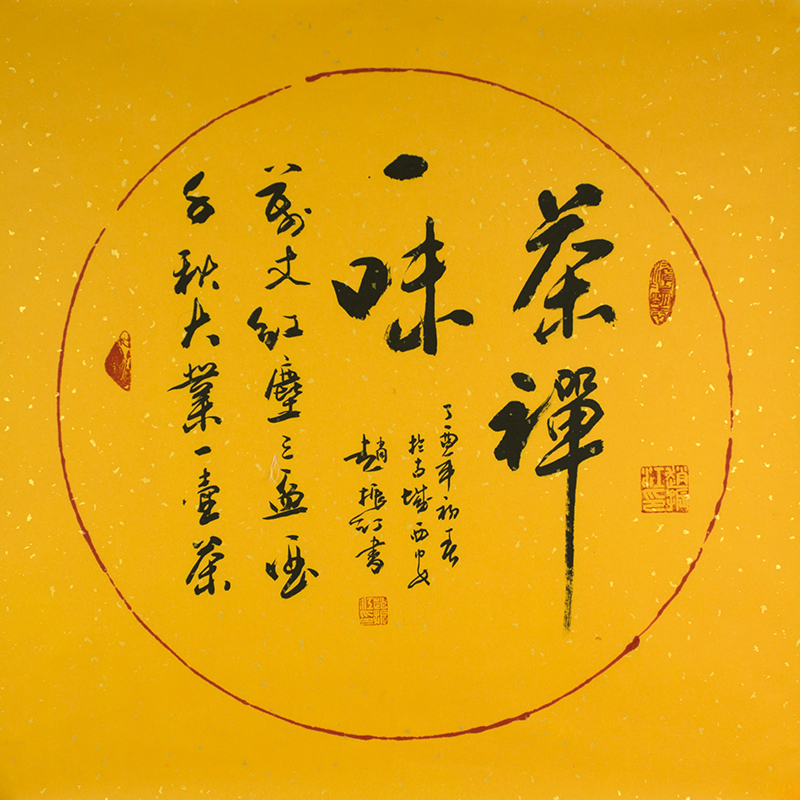 茶禪
一味
丁酉年初春
於古城西安
趙振江書
萬丈紅塵三盃酒
千秋大業一壺茶